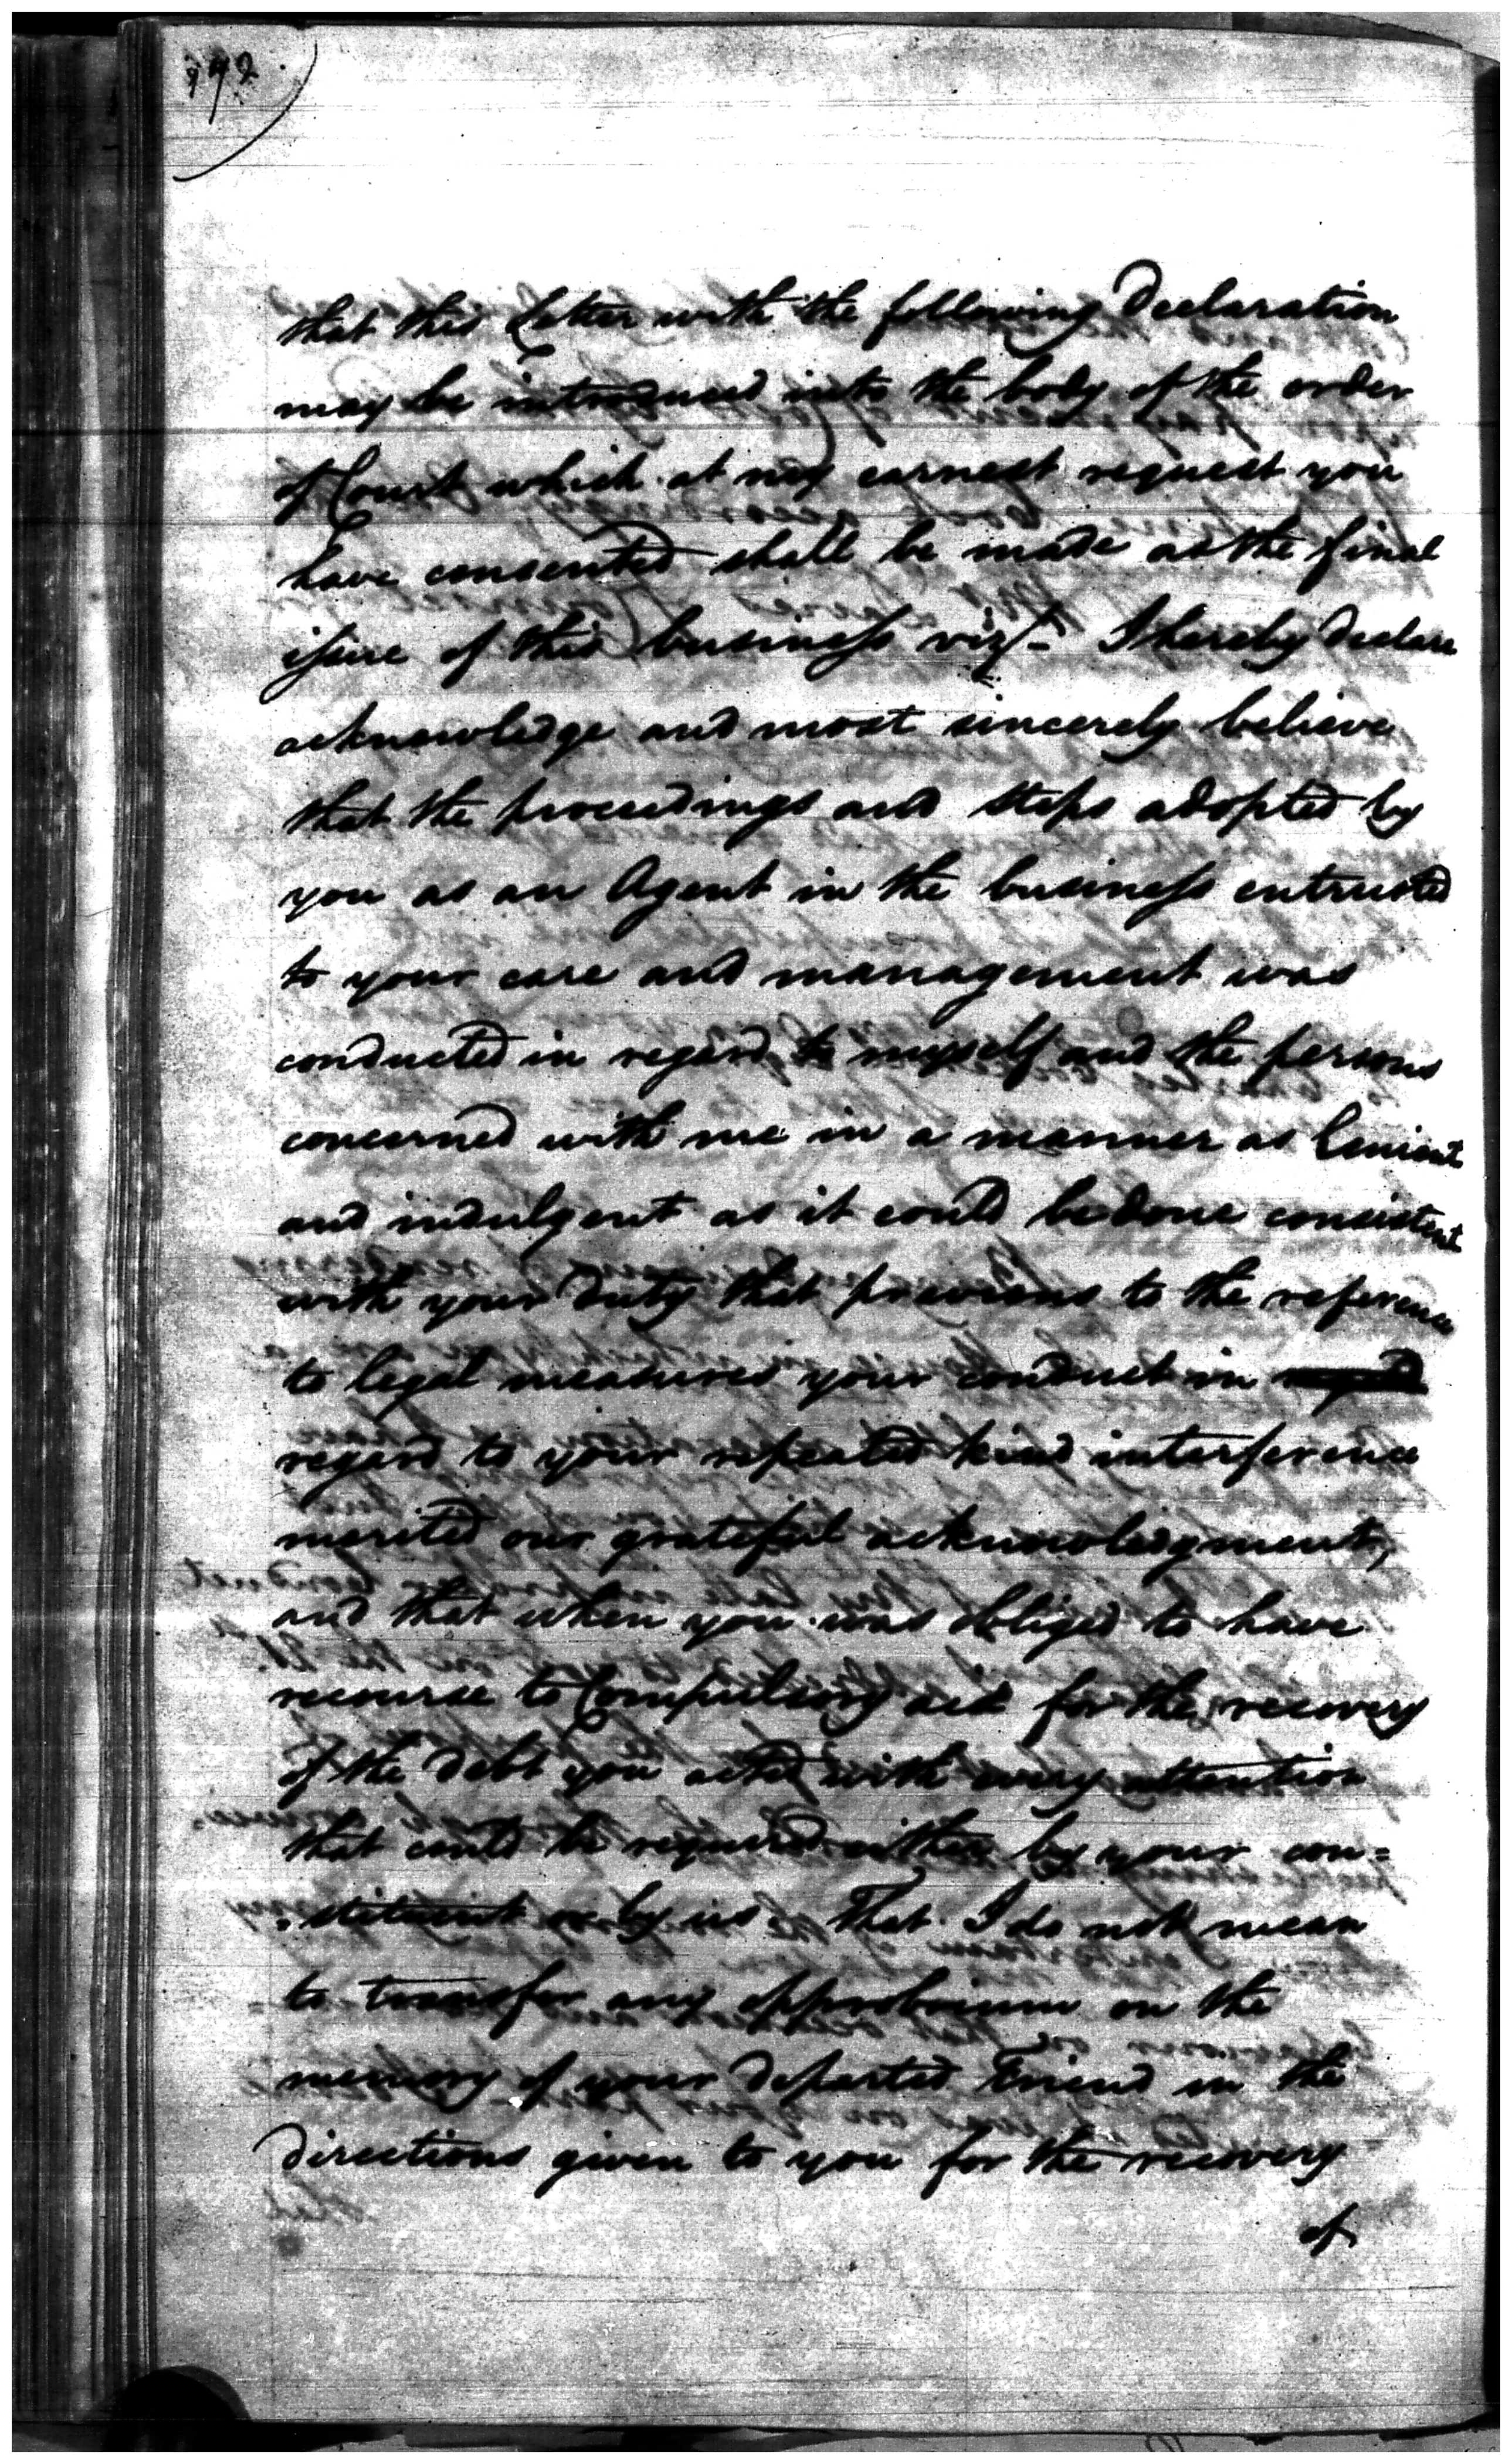 that this Letter with the following Declaration
may be introduced into the body of the order
of Court which at my earnest request you
have consented shall be made as the final
issue of this business viz.- I hereby declare
acknowledge and most sincerely believe
that the proceedings and steps adopted by
you as an Agent in the business entrusted
to your care and management was
conducted in regard to myself and the persons
concerned with me in a manner as lenient
and indulgent as it could be done consistent
with your duty that previous to the reference
to legal measures your conduct in
regard to your repeated kind interference
merited our grateful acknowledgment,
and that when you was obliged to have
recourse to Compulsory aid for the recovery
of the debt you acted with every attention
that could be required either by your con=
=stituent or by us. That I do not mean
to transfer any opprobrium on the
memory of your departed Friend in the
directions given to you for the recovery
of